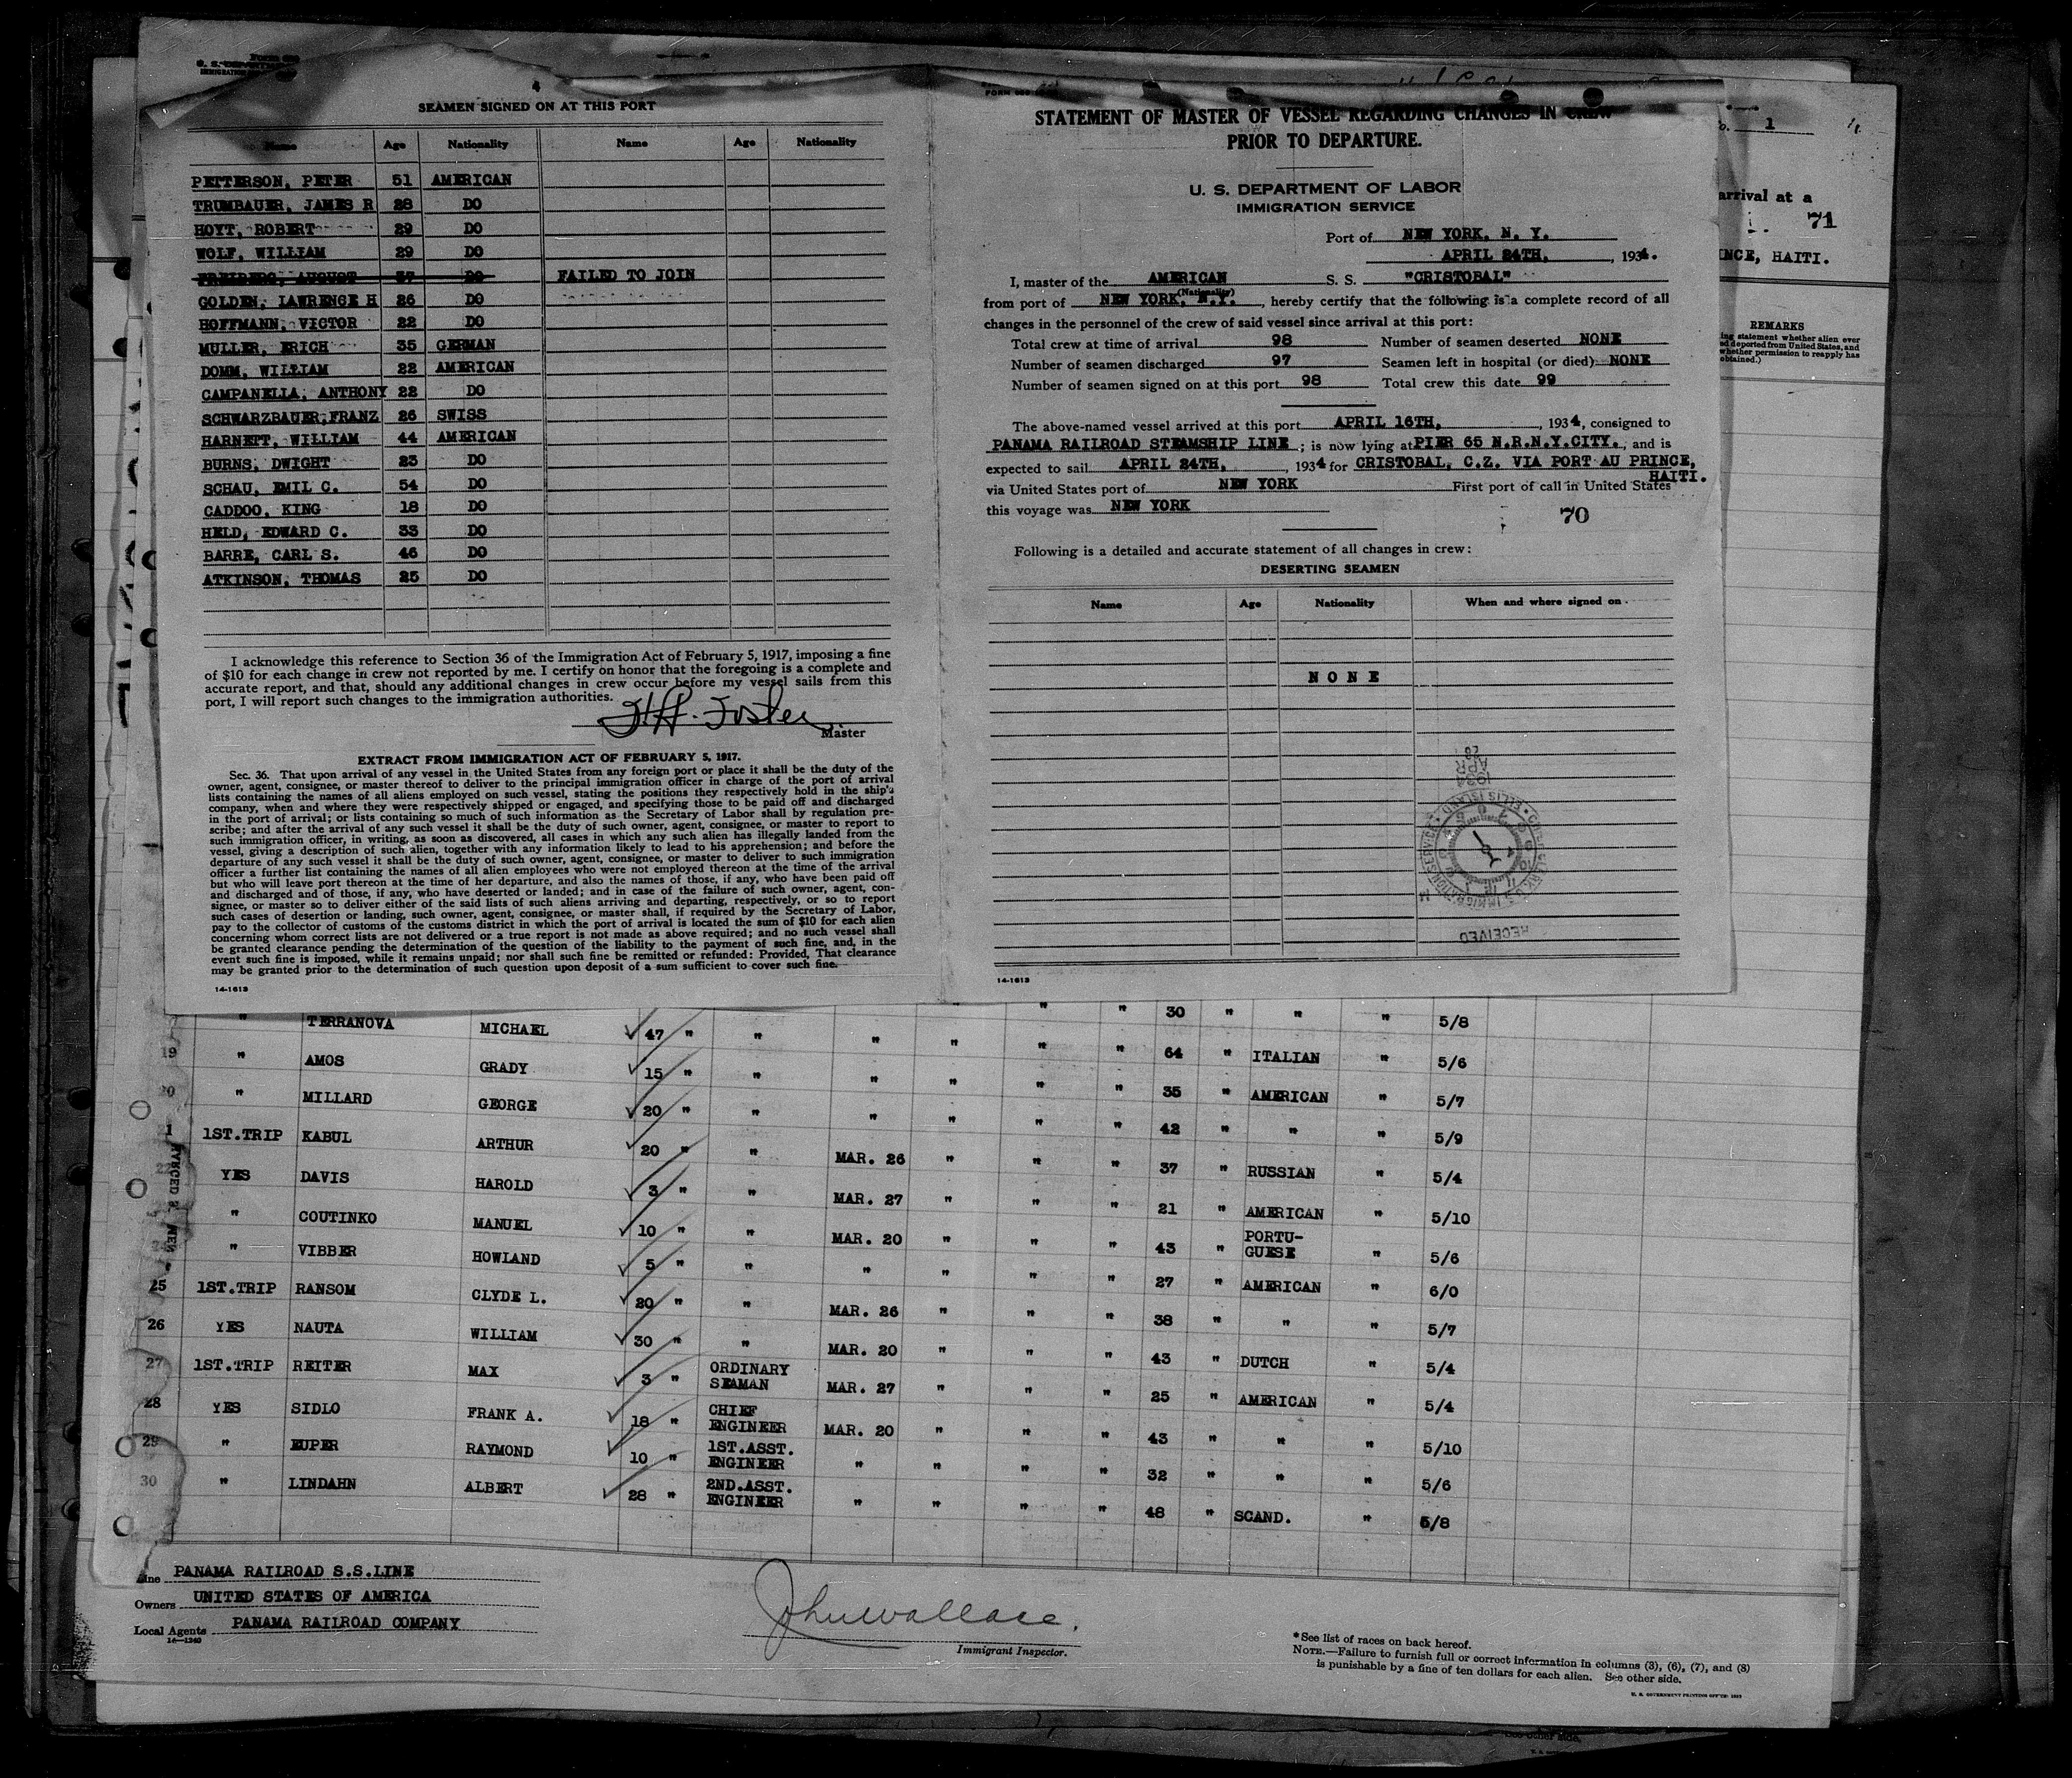 4
SEAMEN SIGNED ON AT THIS PORT
Name Age Nationality Name Age Nationality
PETTERSON, PETER 51 AMERICAN
TRUMBAUER, JAMES R 28 DO
HOYT, ROBERT 29 DO
WOLF, WILLIAM 29 DO
FREIBERG, AUGUST 37 DO FAILED TO JOIN
GOLDEN, LAWRENCE H 26 DO
HOFFMANN, VICTOR 22 DO
MULLER, ERICH 35 GERMAN
DOMM, WILLIAM 22 AMERICAN
CAMPANELLA, ANTHONY 22 DO
SCHWARZBAUER, FRANZ 26 SWISS
HARNETT, WILLIAM 44 AMERICAN
BURNS, DWIGHT 23 DO
SCHAU, EMIL C. 54 DO
CADDOO, KING 18 DO
HELD, EDWARD C. 33 DO
BARRE, CARL S. 46 DO
ATKINSON, THOMAS 25 DO
I acknowledge this reference to Section 36 of the Immigration Act of February 5, 1917, imposing a fine
of $10 for each change in crew not reported by me. I certify on honor that the foregoing is a complete and
accurate report, and that, should any additional changes in crew occur before my vessel sails from this
port, I will report such changes to the immigration authorities.
Foster
Master
EXTRACT FROM IMMIGRATION ACT OF FEBRUARY 5, 1917.
Sec. 36. That upon arrival of any vessel in the United States from any foreign port or place it shall be the duty of the
owner, agent, consignee, or master thereof to deliver to the principal immigration officer in charge of the port of arrival
lists containing the names of all aliens employed on such vessel, stating the positions they respectively hold in the ship's
company, when and where they were respectively shipped or engaged, and specifying those to be paid off and discharged
in the port of arrival; or lists containing so much of such information as the Secretary of Labor shall by regulation pre-
scribe; and after the arrival of any such vessel it shall be the duty of such owner, agent, consignee, or master to report to
such immigration officer, in writing, as soon as discovered, all cases in which any such alien has illegally landed from the
vessel, giving a description of such alien, together with any information likely to lead to his apprehension; and before the
departure of any such vessel it shall be the duty of such owner, agent, consignee, or master to deliver to such immigration
officer a further list containing the names of all alien employees who were not employed thereon at the time of the arrival
but who will leave port thereon at the time of her departure, and also the names of those, if any, who have been paid off
and discharged and of those, if any, who have deserted or landed; and in case of the failure of such owner, agent, con-
signee, or master so to deliver either of the said lists of such aliens arriving and departing, respectively, or so to report
such cases of desertion or landing, such owner, agent, consignee, or master shall, if required by the Secretary of Labor,
pay to the collector of customs of the customs district in which the port of arrival is located the sum of $10 for each alien
concerning whom correct lists are not delivered or a true report is not made as above required; and no such vessel shall
be granted clearance pending the determination of the question of the liability to the payment of such fine, and, in the
event such fine is imposed, while it remains unpaid; nor shall such fine be remitted or refunded: Provided, That clearance
may be granted prior to the determination of such question upon deposit of a sum sufficient to cover such fine.
14-1613
STATEMENT OF MASTER OF VESSEL REGARDING CHANGES IN CREW
PRIOR TO DEPARTURE.
U. S. DEPARTMENT OF LABOR
IMMIGRATION SERVICE
Port of NEW YORK, N. Y.
APRIL 24TH, , 1934.
I, master of the AMERICAN S. S. "CRISTOBAL"
(Nationality)
from port of NEW YORK, N.Y. , hereby certify that the following is a complete record of all
changes in the personnel of the crew of said vessel since arrival at this port:
Total crew at time of arrival 98 Number of seamen deserted NONE
Number of seamen discharged 97 Seamen left in hospital (or died) NONE
Number of seamen signed on at this port 98 Total crew this date 99
The above-named vessel arrived at this port APRIL 16TH, , 1934, consigned to
PANAMA RAILROAD STEAMSHIP LINE ; is now lying at PIER 65 N.R.N.Y.CITY. , and is
expected to sail APRIL 24TH, , 1934 for CRISTOBAL, C.Z. VIA PORT AU PRINCE,
HAITI.
via United States port of NEW YORK First port of call in United States
this voyage was NEW YORK
70
Following is a detailed and accurate statement of all changes in crew:
DESERTING SEAMEN
Name Age Nationality When and where signed on
NONE
1934
APR
RECEIVED
14-1613
1
arrival at a
71
INCE, HAITI.
REMARKS
ing statement whether alien ever
ed deported from United States, and
whether permission to reapply has
obtained.)
" TERRANOVA MICHAEL 47 " " " " " " 30 " " " 5/8
19 " AMOS GRADY 15 " " " " " " 64 " ITALIAN " 5/6
20 " MILLARD GEORGE 20 " " " " " " 35 " AMERICAN " 5/7
1 1ST.TRIP KABUL ARTHUR 20 " " " " " " 42 " " " 5/9
22 YES DAVIS HAROLD 3 " " MAR. 26 " " " 37 " RUSSIAN " 5/4
" COUTINKO MANUEL 10 " " MAR. 27 " " " 21 " AMERICAN " 5/10
24 " VIBBER HOWLAND 5 " " MAR. 20 " " " 43 " PORTU-
GUESE " 5/6
25 1ST.TRIP RANSOM CLYDE L. 20 " " " " " " 27 " AMERICAN " 6/0
26 YES NAUTA WILLIAM 30 " " MAR. 26 " " " 38 " " " 5/7
27 1ST.TRIP REITER MAX 3 " ORDINARY
SEAMAN MAR. 20 " " " 43 " DUTCH " 5/4
28 YES SIDLO FRANK A. 18 " CHIEF
ENGINEER MAR. 27 " " " 25 " AMERICAN " 5/4
29 " EUPER RAYMOND 10 " 1ST.ASST.
ENGINEER MAR. 20 " " " 43 " " " 5/10
30 " LINDAHN ALBERT 28 " 2ND.ASST.
ENGINEER " " " " 32 " " " 5/6
" " " " 48 " SCAND. " 5/8
Line PANAMA RAILROAD S.S.LINE
Owners UNITED STATES OF AMERICA
Local Agents PANAMA RAILROAD COMPANY
14-1240
John Wallace.
Immigrant Inspector.
*See list of races on back hereof.
NOTE.—Failure to furnish full or correct information in columns (3), (6), (7), and (8)
is punishable by a fine of ten dollars for each alien. See other side.
U. S. GOVERNMENT PRINTING OFFICE: 1933